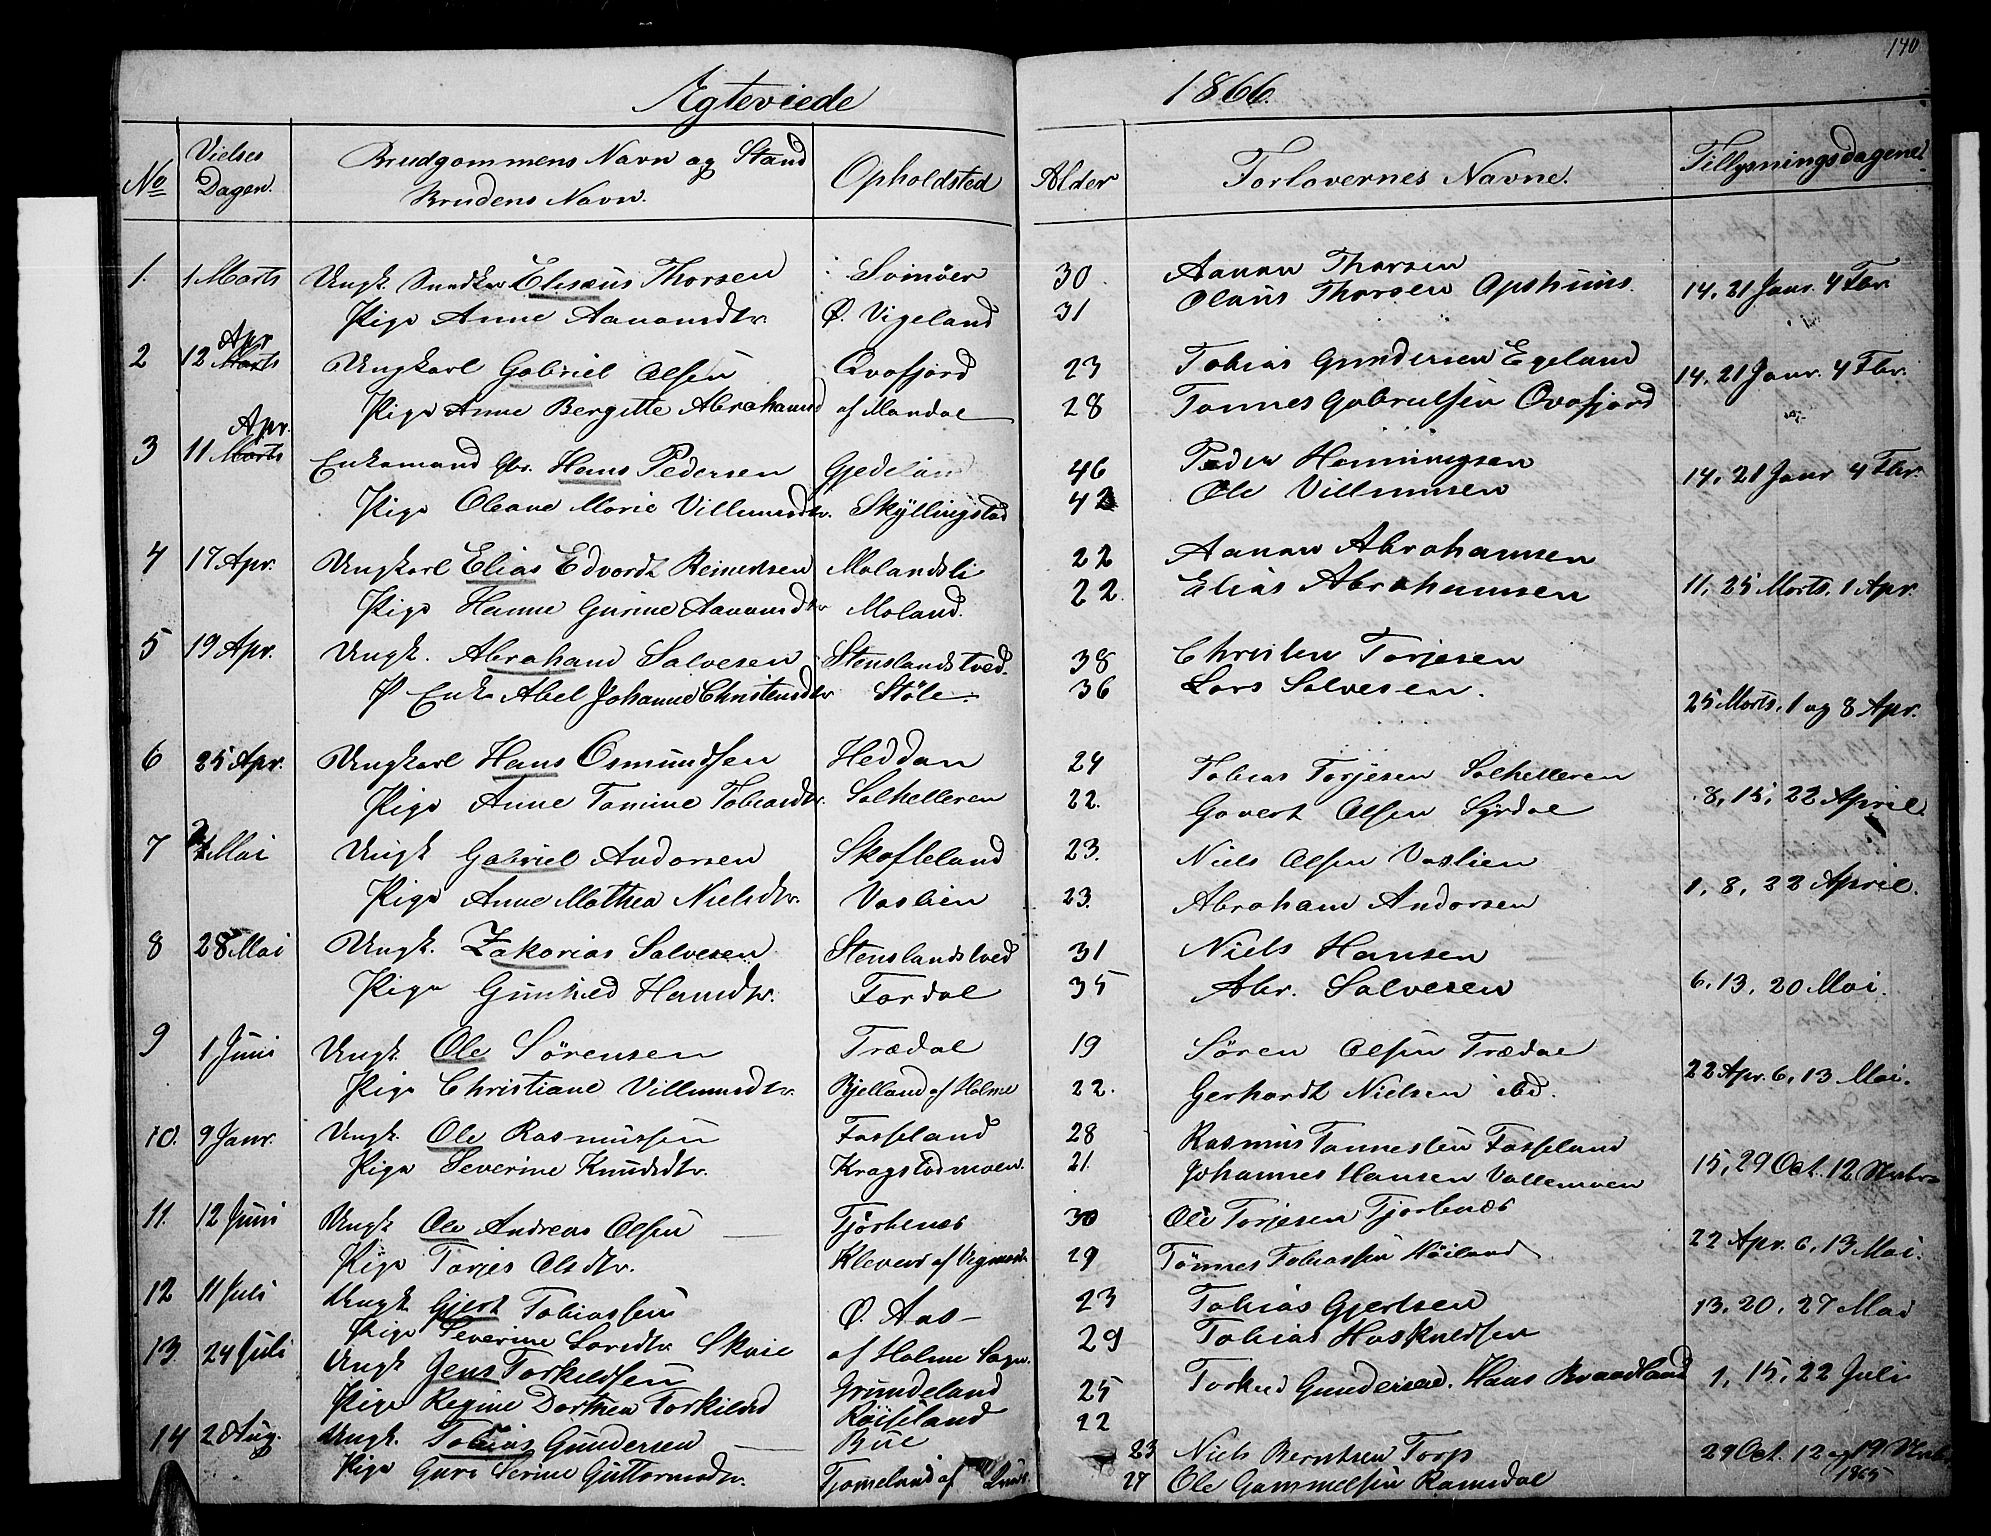 140
Ægteviede 1866.
No Vielses Dagen. Brudgommens Navn og Stand Brudens Navn. Opholdsted Alder Forlovernes Navne. Tillysningsdagene
1. 1 Marts Ungk. Elisæus Thorsen Svinøer 30 Aanen Thorsen 14, 21 Janr. 4 Fbr.
Pige Anne Aanensdtr. Ø. Vigeland 31 Olaus Thorsen Opshuus.
2 12 Marts Apr Ungkarl Gabriel Olsen Ovafjord 23 Tobias Gundersen Egeland 14, 21 Janr. 4 Fbr.
Pige Anne Bergitte Abrahamsd af Mandal 28 Tønnes Gabrielsen Ovafjord
3 11 Marts Apr. Enkemand Gbr. Hans Pedersen Gjedeland 46 Peder Henningsen 14, 21 Janr 4 Fbr.
Pige Oleane Marie Villumsdtr. Skyllingstad 42 Ole Villumsen
4 17 Apr. Ungkarl Elias Edvardt Reinertsen Molandsli 22 Aanen Abrahamsen 11, 25 Marts, 1 Apr.
Pige Hanne Gurine Aanensdtr Moland. 22. Elias Abrahamsen
5 19 Apr. Ungk. Abraham Salvesen Stenslandstved. 38 Christen Torjesen
P Enke Abel Johanne Christensdtr Støle. 36 Lars Salvesen. 25 Marts, 1 og 8 Apr.
6 25 Apr. Ungkarl Hans Osmundsen Heddan 24 Tobias Torjesen Solhelleren 8, 15, 22 April.
Pige Anne Tomine Tobiasdtr. Solhelleren 22. Govert Olsen Syrdal
7 Mai Ungk Gabriel Andersen Skofteland 23. Niels Olsen Vaslien 1, 8, 22 April.
Pige Anne Mathea Nielsdtr. Vaslien 23. Abraham Andersen
8 28 Mai Ungk. Zakarias Salvesen Stenslandstved 31 Niels Hansen
Pige Gunhild Hansdtr. Fardal 35 Abr. Salvesen 6, 13, 20 Mai.
9 1 Juni Ungk Ole Sørensen Trædal 19 Søren Olsen Trædal 22 Apr. 6, 13 Mai.
Pige Christiane Villumsdtr. Bjelland af Holme 22. Gerhardt Nielsen ibd.
10. 9 Janr. Ungk. Ole Rasmussen Fasseland 28 Rasmus Tønnessen Fasseland 15, 29 Oct. 12 Nvbr
Pige Severine Knudsdtr. Kragstadmoen. 21. Johannes Hansen Vallemoen
11. 12 Juni Ungk Ole Andreas Olsen Tjørtenæs 30 Ole Torjesen Tjortenæs 22 Apr. 6, 13 Mai.
Pige Torjer Olsdtr. 29 Tønnes Tobiassen Høiland
12 11 Juli Ungk Gjert Tobiassen Ø. Aas 23 Tobias Gjertsen 13, 20, 27 Mai
Pige Severine Skoie af Holme Sogn. 29 Tobias Haskuldsen
13 24 Juli Ungk Jens Torkildsen Grundeland 25 Torkild Gundersen. Hans Brandland 1, 15, 22 Juli
Pige Regine Dorthea Torkildsd Røiseland 22
14 2 Aug. Ungk. Tobias Gundersen Bue 23 Niels Berntsen Torp 29 Oct. 12 og 19 Nvbr 1865
Pige Guro Serine Guttormsdtr. Tjomeland af 27 Ole Gammelsen Ramsdal